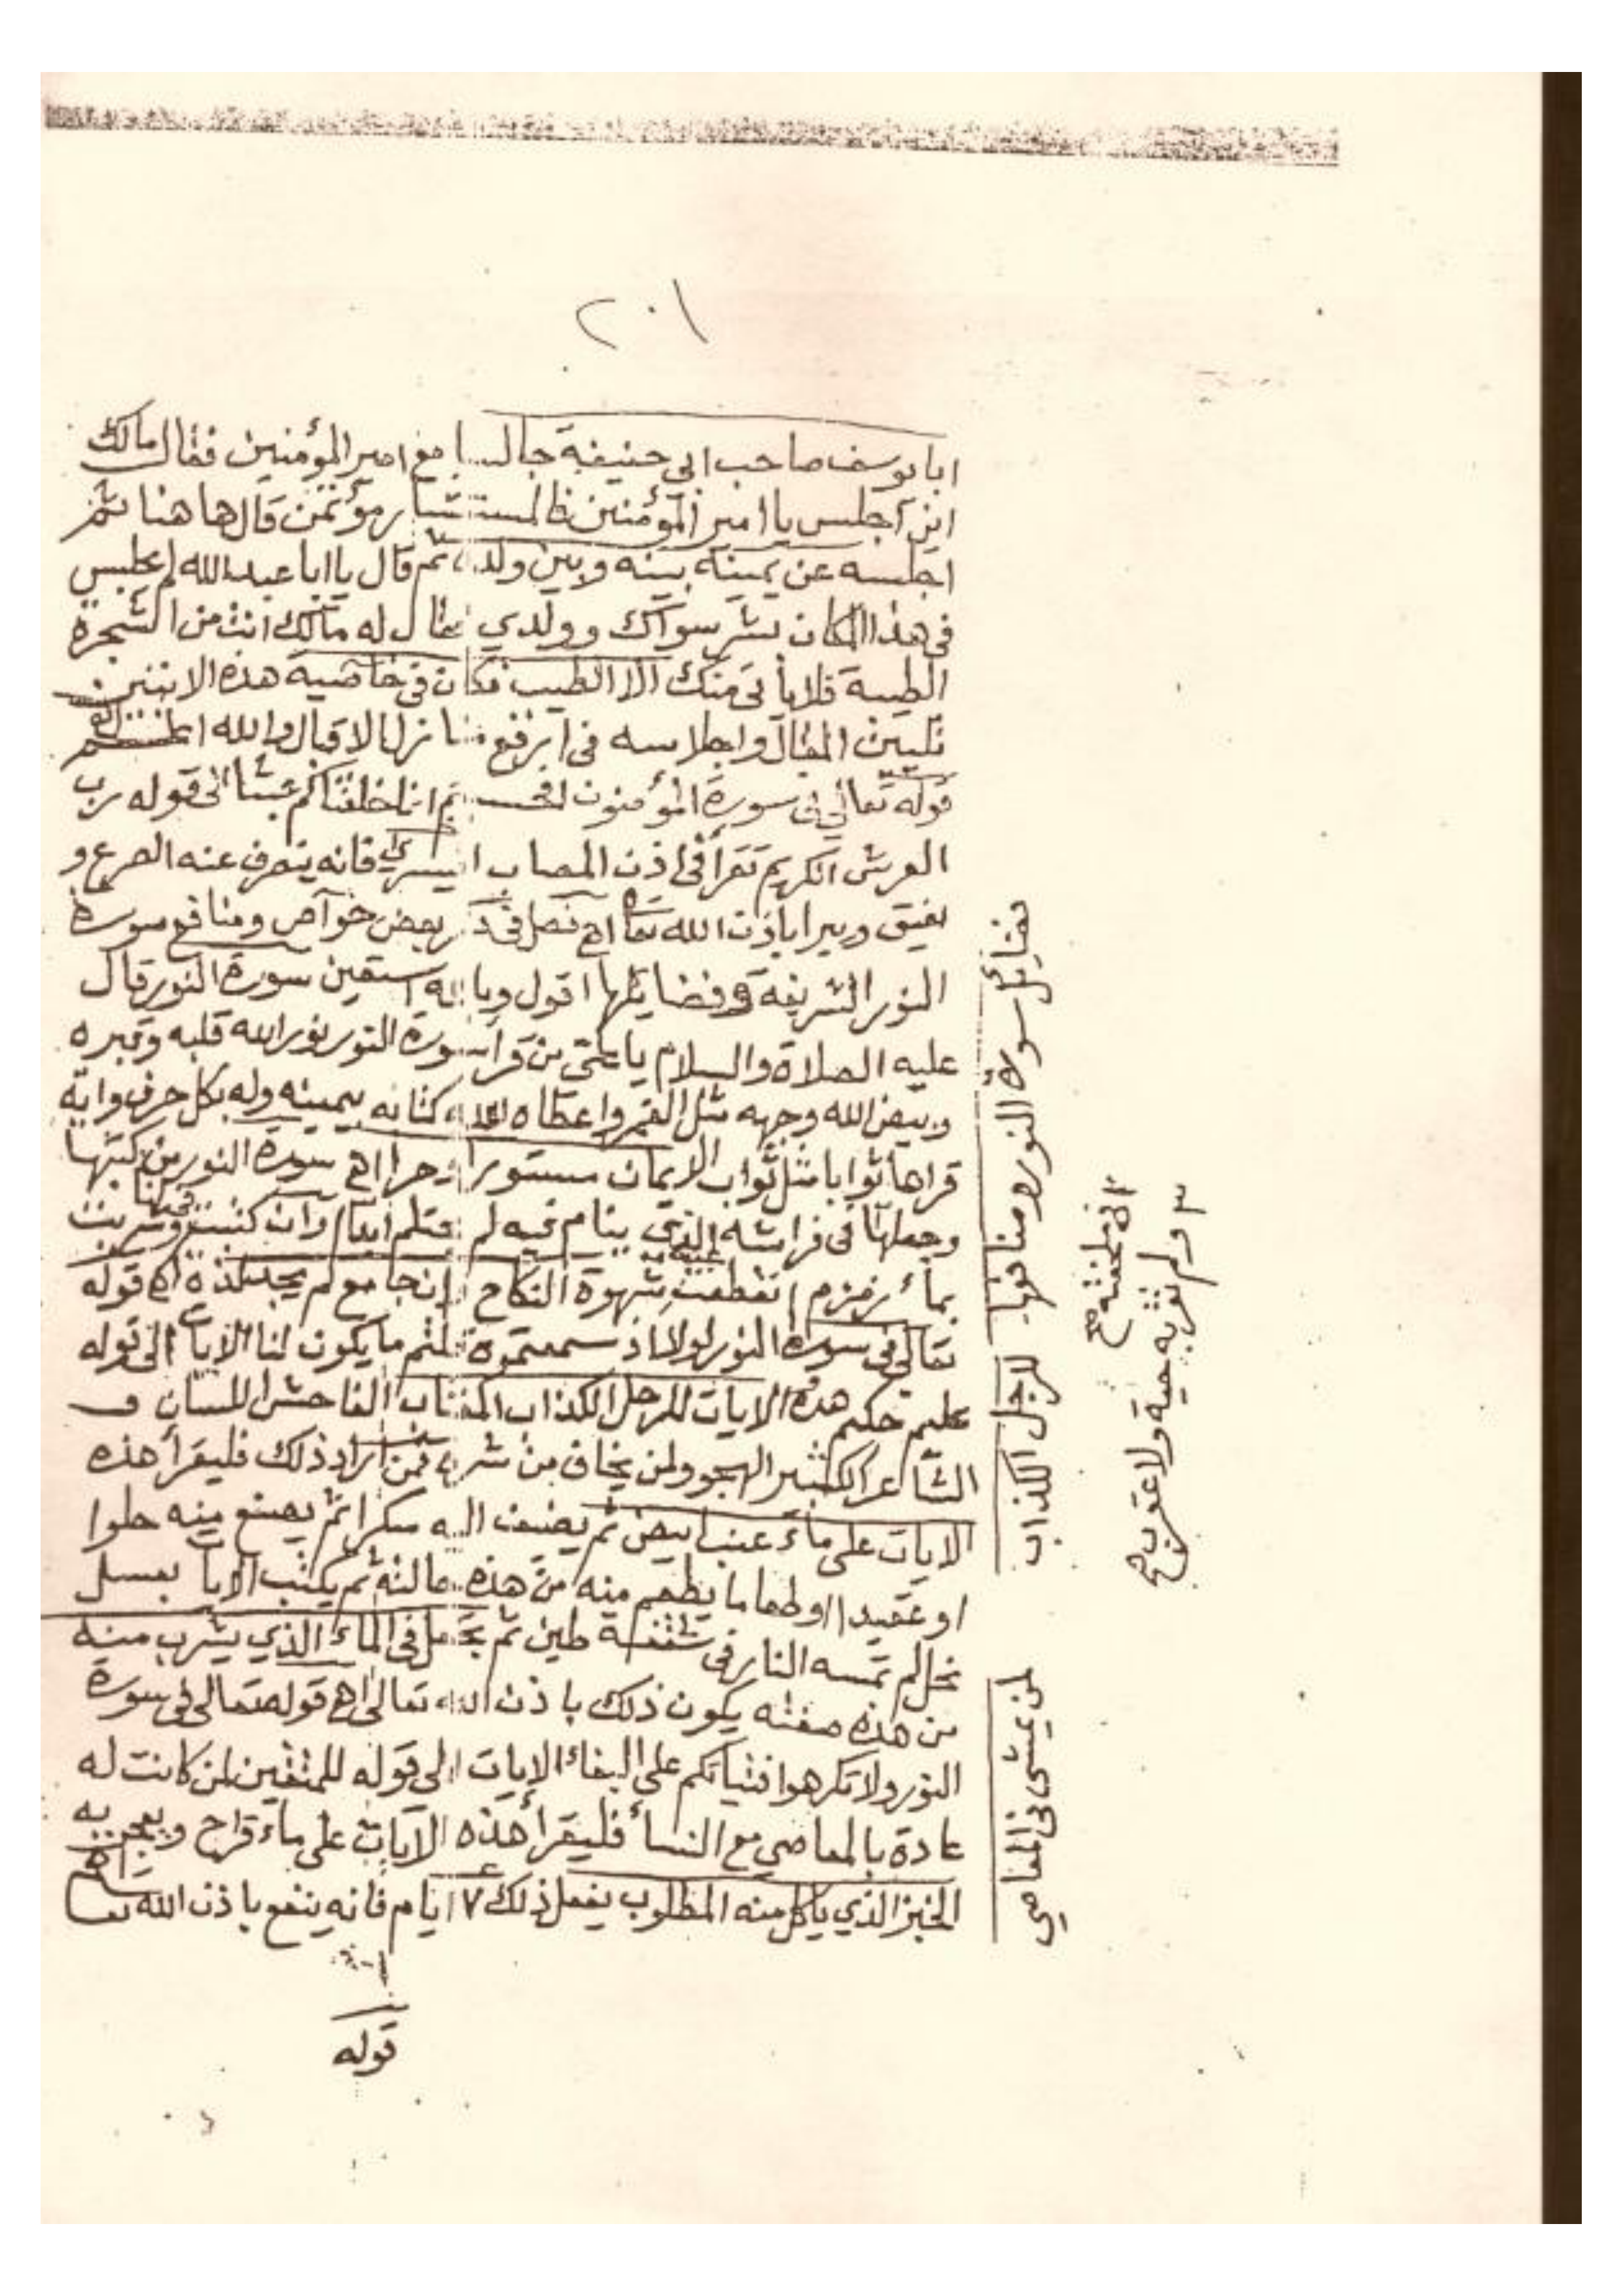 ٢٠١
ابا يوسف صاحب ابى حنيفة جالسا مع امير المؤمنين فقال مالك
اين آجلس يا امير المؤمنين فالمستشار مؤتمن قال ها هنا ثم
اجلسه عن يمينه بينه وبين ولده ثم قال يا ابا عبد الله لم يجلس
فى هذا المكان بشر سواك وولدي فقال له مالك انت من الشجرة
الطيبة فلا يأتى منك الا الطيب فكان فى خاصية هذه الاثنين
تليين المقال واجلاسه فى ارفع منازل الاقبال والله
قوله تعالى فى سورة المؤمنون افحسبتم انما خلقناكم عبثا الى قوله رب
العرش الكريم تقرأ فى اذن المصاب اليسرى فانه ينصرف عنه الصرع و
يفيق ويبرا باذن الله تعا اه فصل فى ذكر بعض خوآص ومنافع سورة
النور الشريفة وفضايلها اقول وبالله استعين سورة النور قال
عليه الصلاة والسلام يا على من قرأ سورة النور نور الله قلبه وقبره
وبيض الله وجهه مثل القمر واعطاه الله كتابه بيمينه وله بكل حرف واية
قراها ثوابا مثل ثواب الايمان مستورا اه سورة النور من كتبها
وجعلها فى فراشه الذي ينام فيه لم يحتلم ابدا وان كتبت ومحيت وشربت
بمأ زمزم انقطعت عنه شهوة النكاح وإن جامع لم يجد لذة اه قوله
تعالى فى سورة النور لولا اذ سمعتموه قلتم ما يكون لنا الايات الى قوله
عليم حكيم هذه الايات للرجل الكذاب المغتاب الفاحش اللسان و
الشاعر الكثير الهجو ولمن يخاف من شره فمن اراد ذلك فليقرأ هذه
الايات على ماء عنب ابيض ثم يضيف اليه سكرا ثم يصنع منه حلوا
او عقيدا او طعاما يطعم منه من هذه حالته ثم يكتب الايا بعسل
نحل لم تمسه النار فى شقفة طين ثم يجعل فى الماء الذي يشرب منه
من هذه صفته يكون ذلك باذن الله تعالى اه قوله تعالى فى سورة
النور ولا تكرهوا فتياتكم على البغاء الايات الى قوله للمتقين لمن كانت له
عادة بالمعاصي مع النسأ فليقرأ هذه الآيات على ماء قراح ويعجن به
الخبز الذي يأكل منه المطلوب يفعل ذلك ٧ ايام فانه ينفع باذن الله تعا اه
قوله
فضائل سورة النور ومنافعها
للرجل الكذاب
لمن يمشى فى المعاصي
٢ او فى ملحفته صح
٣ ولم تقربه حية ولا عقرب صح